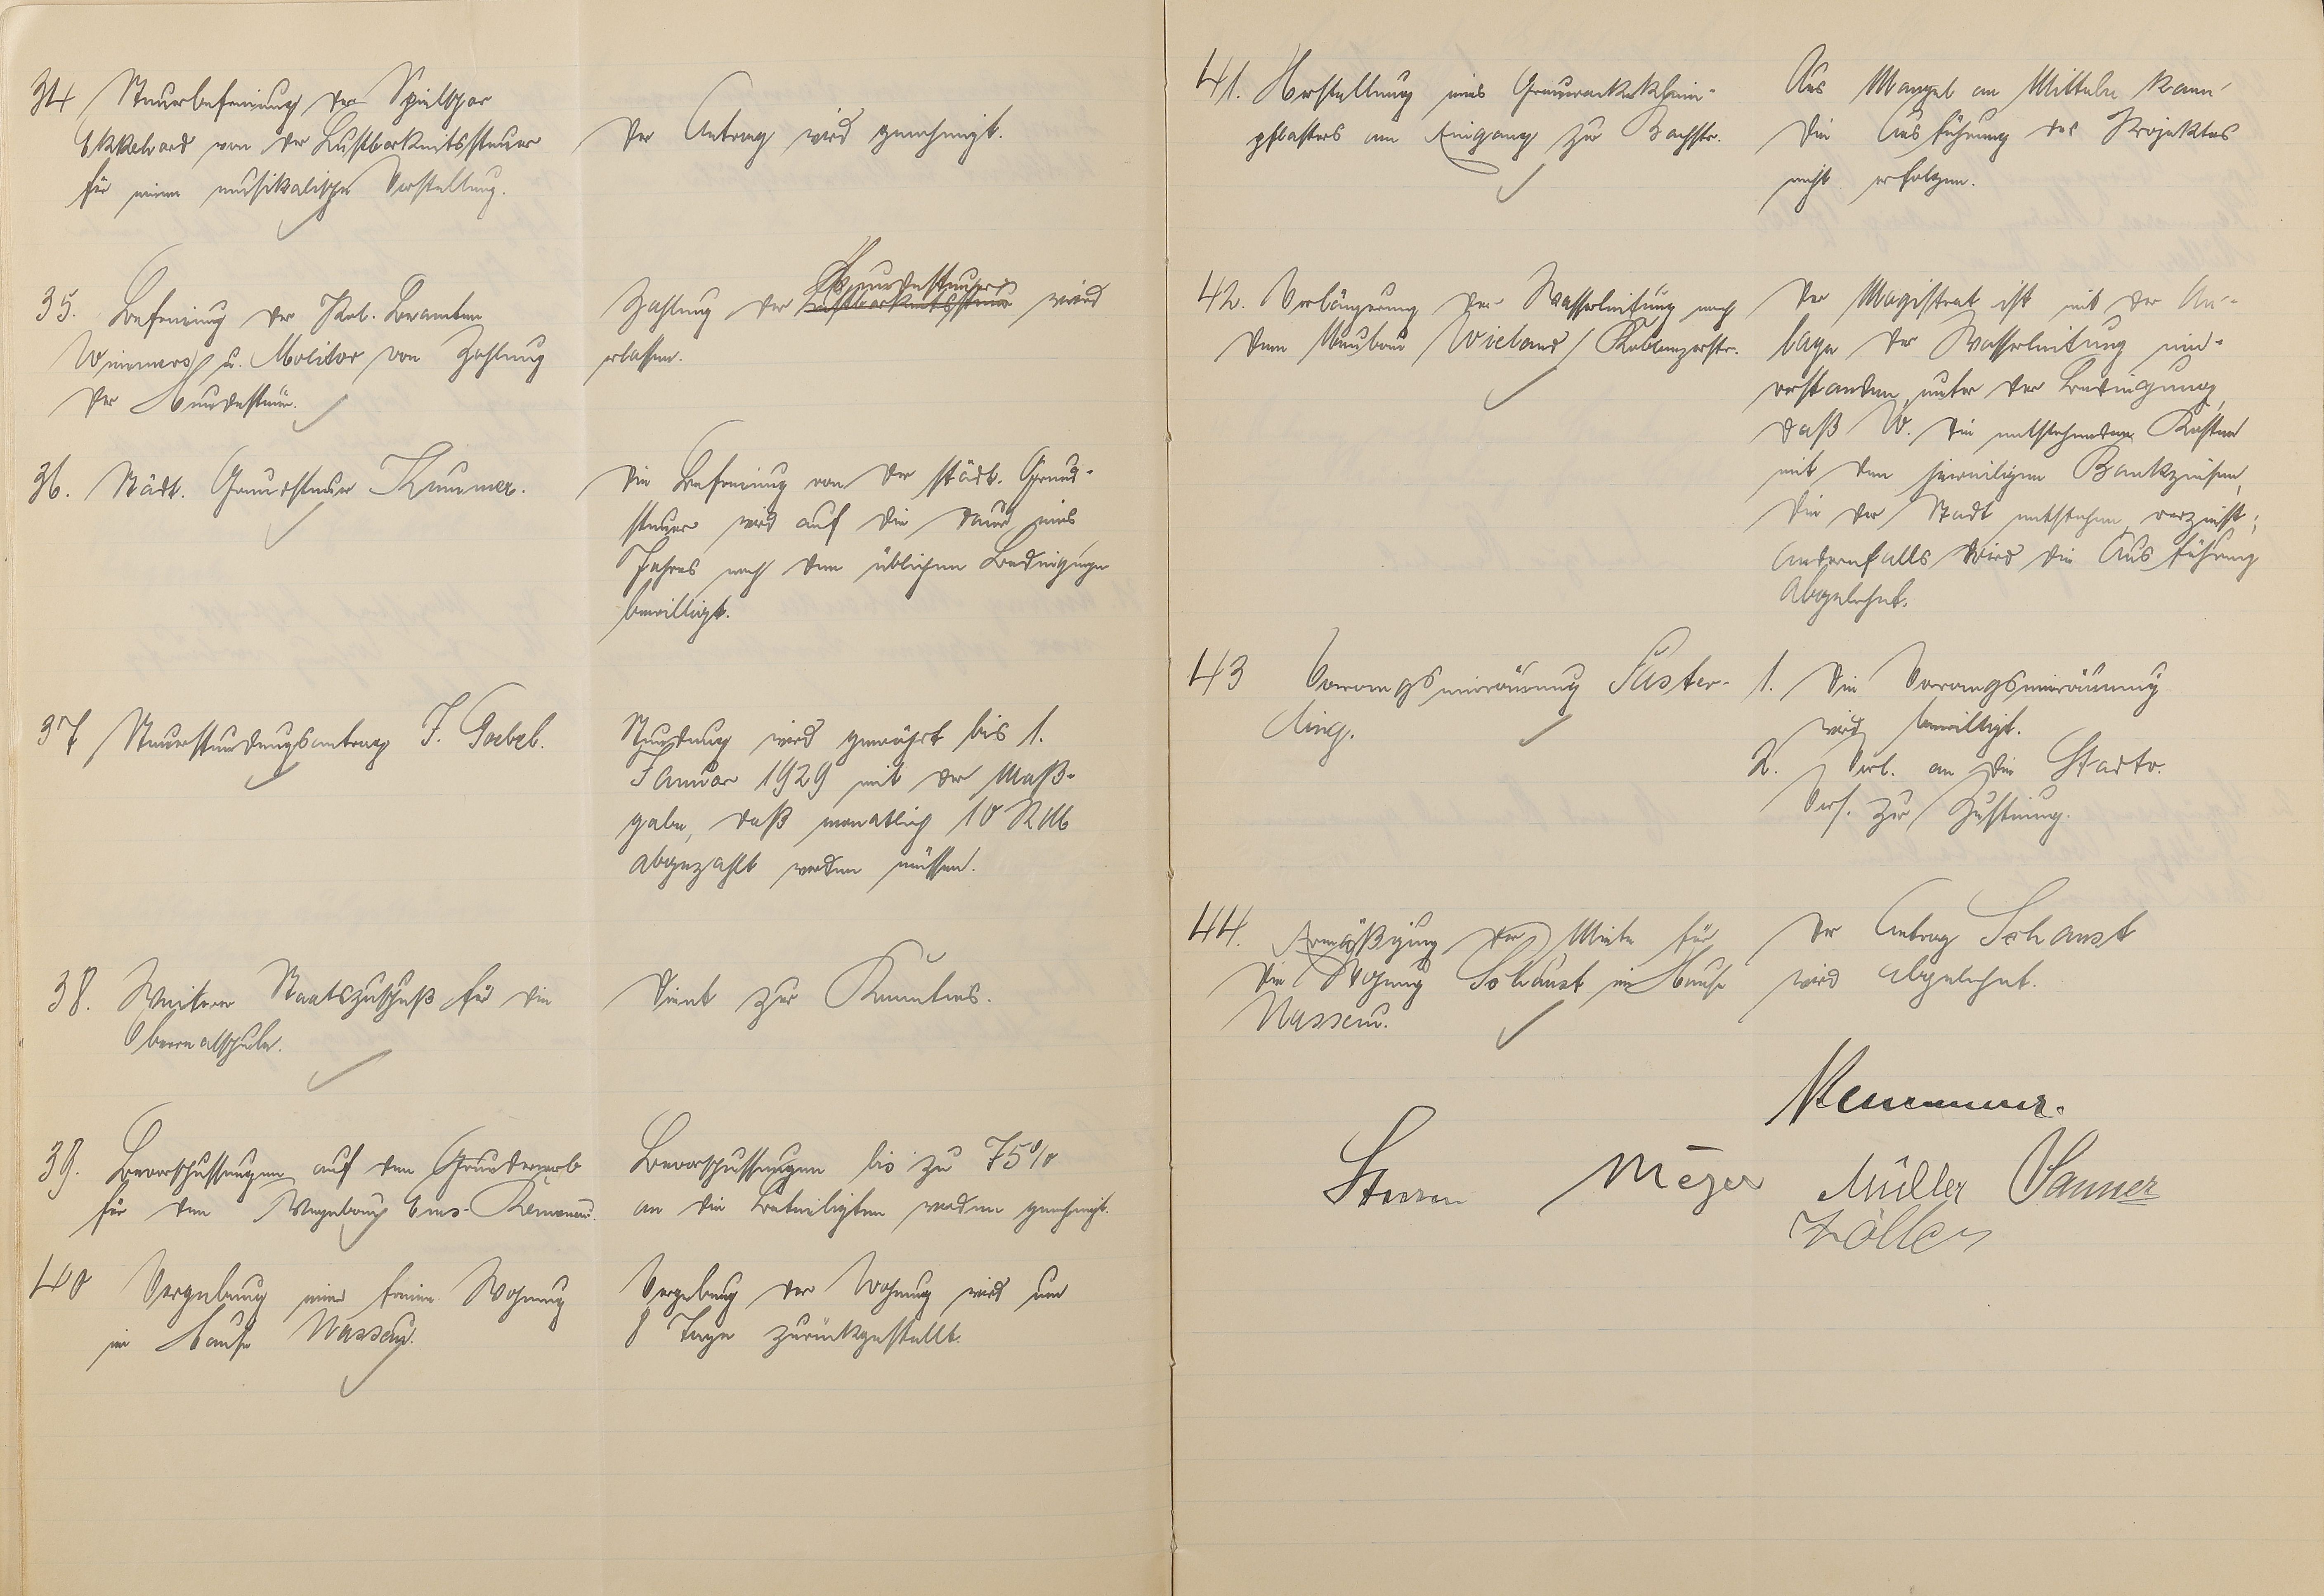 34 Steuerbefreiung der Spielschar
Ekkehard von der Lustbarkeitssteuer
für einen musikalischen Vorstellung.
Der Antrag wird genehmigt.
35. Befreiung der Pol. Beamten
Wimmers u. Molitor von Zahlung
der Hundesteuer.
Hundesteuer
Zahlung der Lustbarkeitssteuer wird
erlassen.
36. Städt. Grundsteuer Krummer.
Die Befreiung von der städt. Grund-
steuer wird auf die Dauer eines
Jahres nach den üblichen Bedingungen
bewilligt.
37 Steuerstundungsantrag J. Goebel.
Stundung wird gewährt bis 1.
Januar 1929 mit der Maß-
gabe, daß monatlich 10 RM
abgezahlt werden müssen.
38. Weiterer Staatszuschuß für die
Oberrealschule.
Dient zur Kenntnis.
39. Bevorschussungen auf den Grunderwerb
für den Wegebau Ems-Kemenau.
Bevorschussungen bis zu 75%
an die Beteiligten werden genehmigt.
40 Vergebung einer freien Wohnung
im Hause Nassau.
Vergebung der Wohnung wird um
8 Tage zurückgestellt.
41. Herstellung eines Grauwackeklein-
pflasters am Eingang zur Bachstr.
Aus Mangel an Mitteln kann
die Ausführung des Projektes
nicht erfolgen.
42. Verlängerung der Wasserleitung nach
dem Neubau Wieland / Koblenzerstr.
Der Magistrat ist mit der An-
lage der Wasserleitung ein-
verstanden, unter der Bedingung,
daß W. die entstehenden Kosten
mit den jeweiligen Bankzinsen,
die der Stadt entstehen, verzinst;
andernfalls wird die Ausführung
abgelehnt.
43 Vorrangseinräumung Suster-
ling.
1. Die Vorrangseinräumung
wird bewilligt.
2. Vorl. an die Stadtv.
Vers. zur Zustimmung.
44. Ermäßigung der Miete für
die Wohnung Schaust im Hause
Nassau.
Der Antrag Schaust
wird abgelehnt.
Meyer Müller Sanner
Zöller